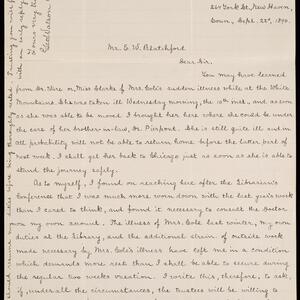 264 York St., New Haven,
Conn., Sept. 22d, 1890.
Mr. E. W. Blatchford
Dear Sir,
You may have learned
from Dr. or Miss Clarke of Mrs. Cole's sudden illness while at the White
Mountains. She was taken ill Wednesday morning, the 10th inst., and as soon
as she was able to be moved I brought her here where she could be under
the care of her brother-in-law, Dr. Pierpont. She is still quite ill and in
all probability will not be able to return home before the latter part of
next week. I shall get her back to Chicago just as soon as she is able to
stand the journey safely.
As to myself, I found on reaching here after the Librarian's
Conference that I was much more worn down with the last year's work
than I cared to think, and found it necessary to consult the doctor
on my own account. The illness of Mrs. Cole last winter, my own
duties at the Library, and the additional strain of outside work
made necessary by Mrs. Cole's illness have left me in a condition
which demands more rest than I shall be able to secure during
the regular two weeks vacation. I write this, therefore, to ask
if, under all the circumstances, the trustees will be willing to
my duties before being thoroughly rested. Trusting you will favor me
with an early reply
Yours very truly
Geo. Watson Cole